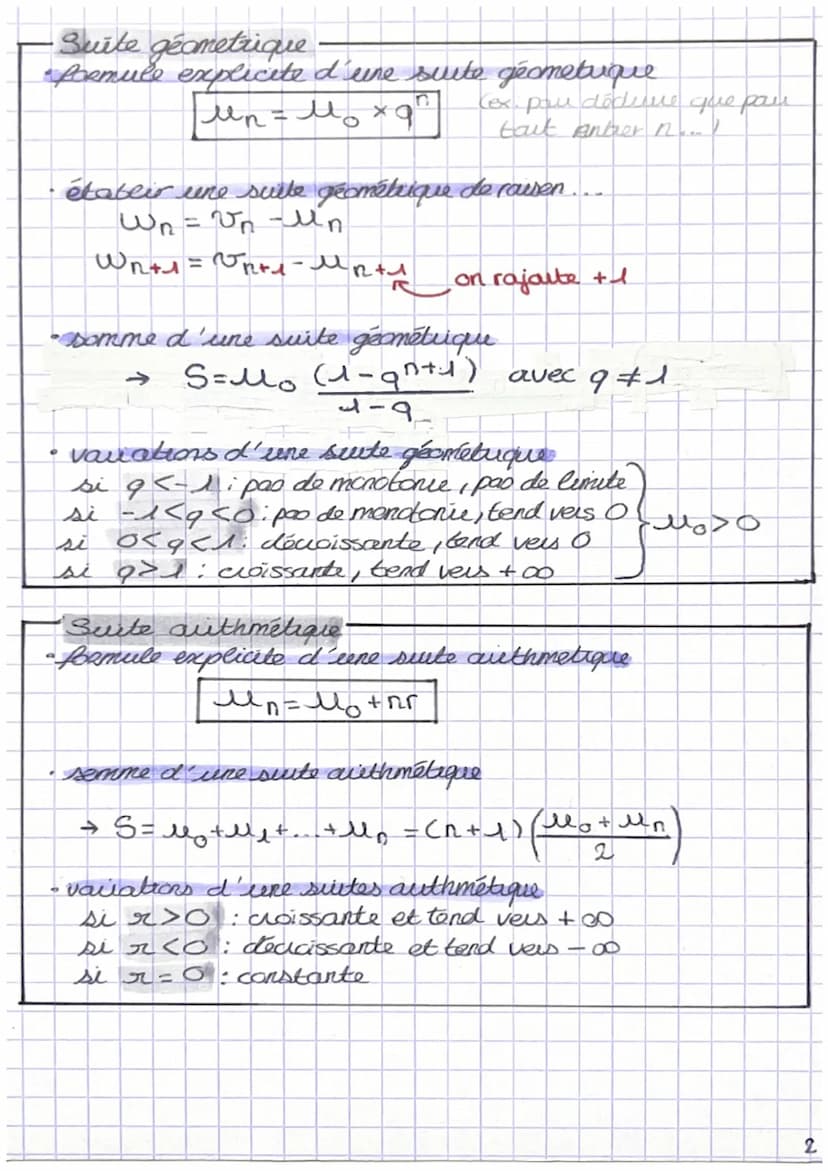 Suite géometrique
• formule explicite d'une suite géometrique
un = u0 × q^n
(ex. pau déduire que pau
tout entier n...)
• établir une suite géométrique de raison...
wn = vn - un
wn+1 = vn+1 - un+1
on rajoute +1
• somme d'une suite géométrique
→ S = u0 (1-q^n+1) / 1-q avec q ≠ 1
• variations d'une suite géométrique
si q<-1 : pas de monotonie, pas de limite
si -1<q<0 : pas de monotonie, tend vers 0
si 0<q<1 : décroissante, tend vers 0
si q>1 : croissante, tend vers +∞
} u0>0
Suite arithmétique
• formule explicite d'une suite arithmetique
un = u0 + nr
• somme d'une suite arithmétique
→ S = u0 + u1 + ... + un = (n+1) (u0 + un / 2)
• variations d'une suites arithmétique
si r>0 : croissante et tend vers +∞
si r<0 : décroissante et tend vers -∞
si r=0 : constante
2